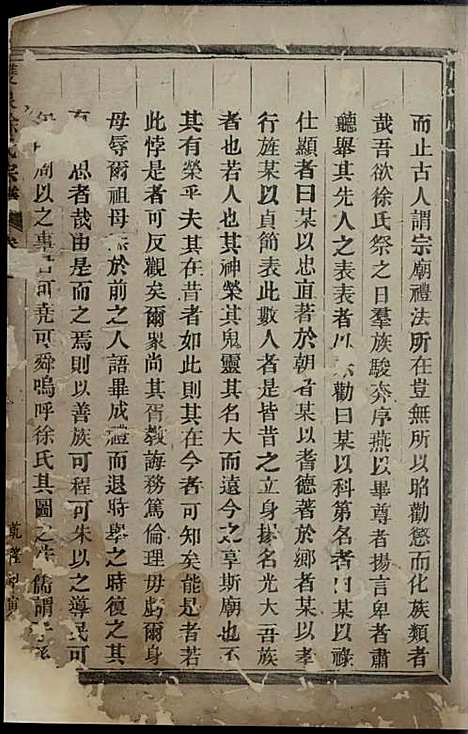 而止古人謂宗廟禮法所在豈無所以昭勸懲而化族類者
哉吾欲徐氏祭之日羣族駿奔序燕以畢尊者揚言卑者肅
聽舉其先人之表表者以勸曰某以科第名者曰某以祿
仕顯者曰某以忠直著於朝者某以耆德著於鄉者某以孝
行旌某以貞節表此數人者是皆昔之立身揚名光大吾族
者也若人也其神榮其鬼靈其名大而遠今之享斯廟也不
其有榮乎夫其在昔者如此則其在今者可知矣能是者若
此悖是者可反觀矣爾眾尚其胥教誨務篤倫理毋虧爾身
母辱爾祖母於前之人語畢成禮而退時舉之時復之其
思者哉由是而之焉則以善族可程可朱以之導民可
以之事君可堯可舜嗚呼徐氏其圖之儒謂
徐氏宗譜
乾隆